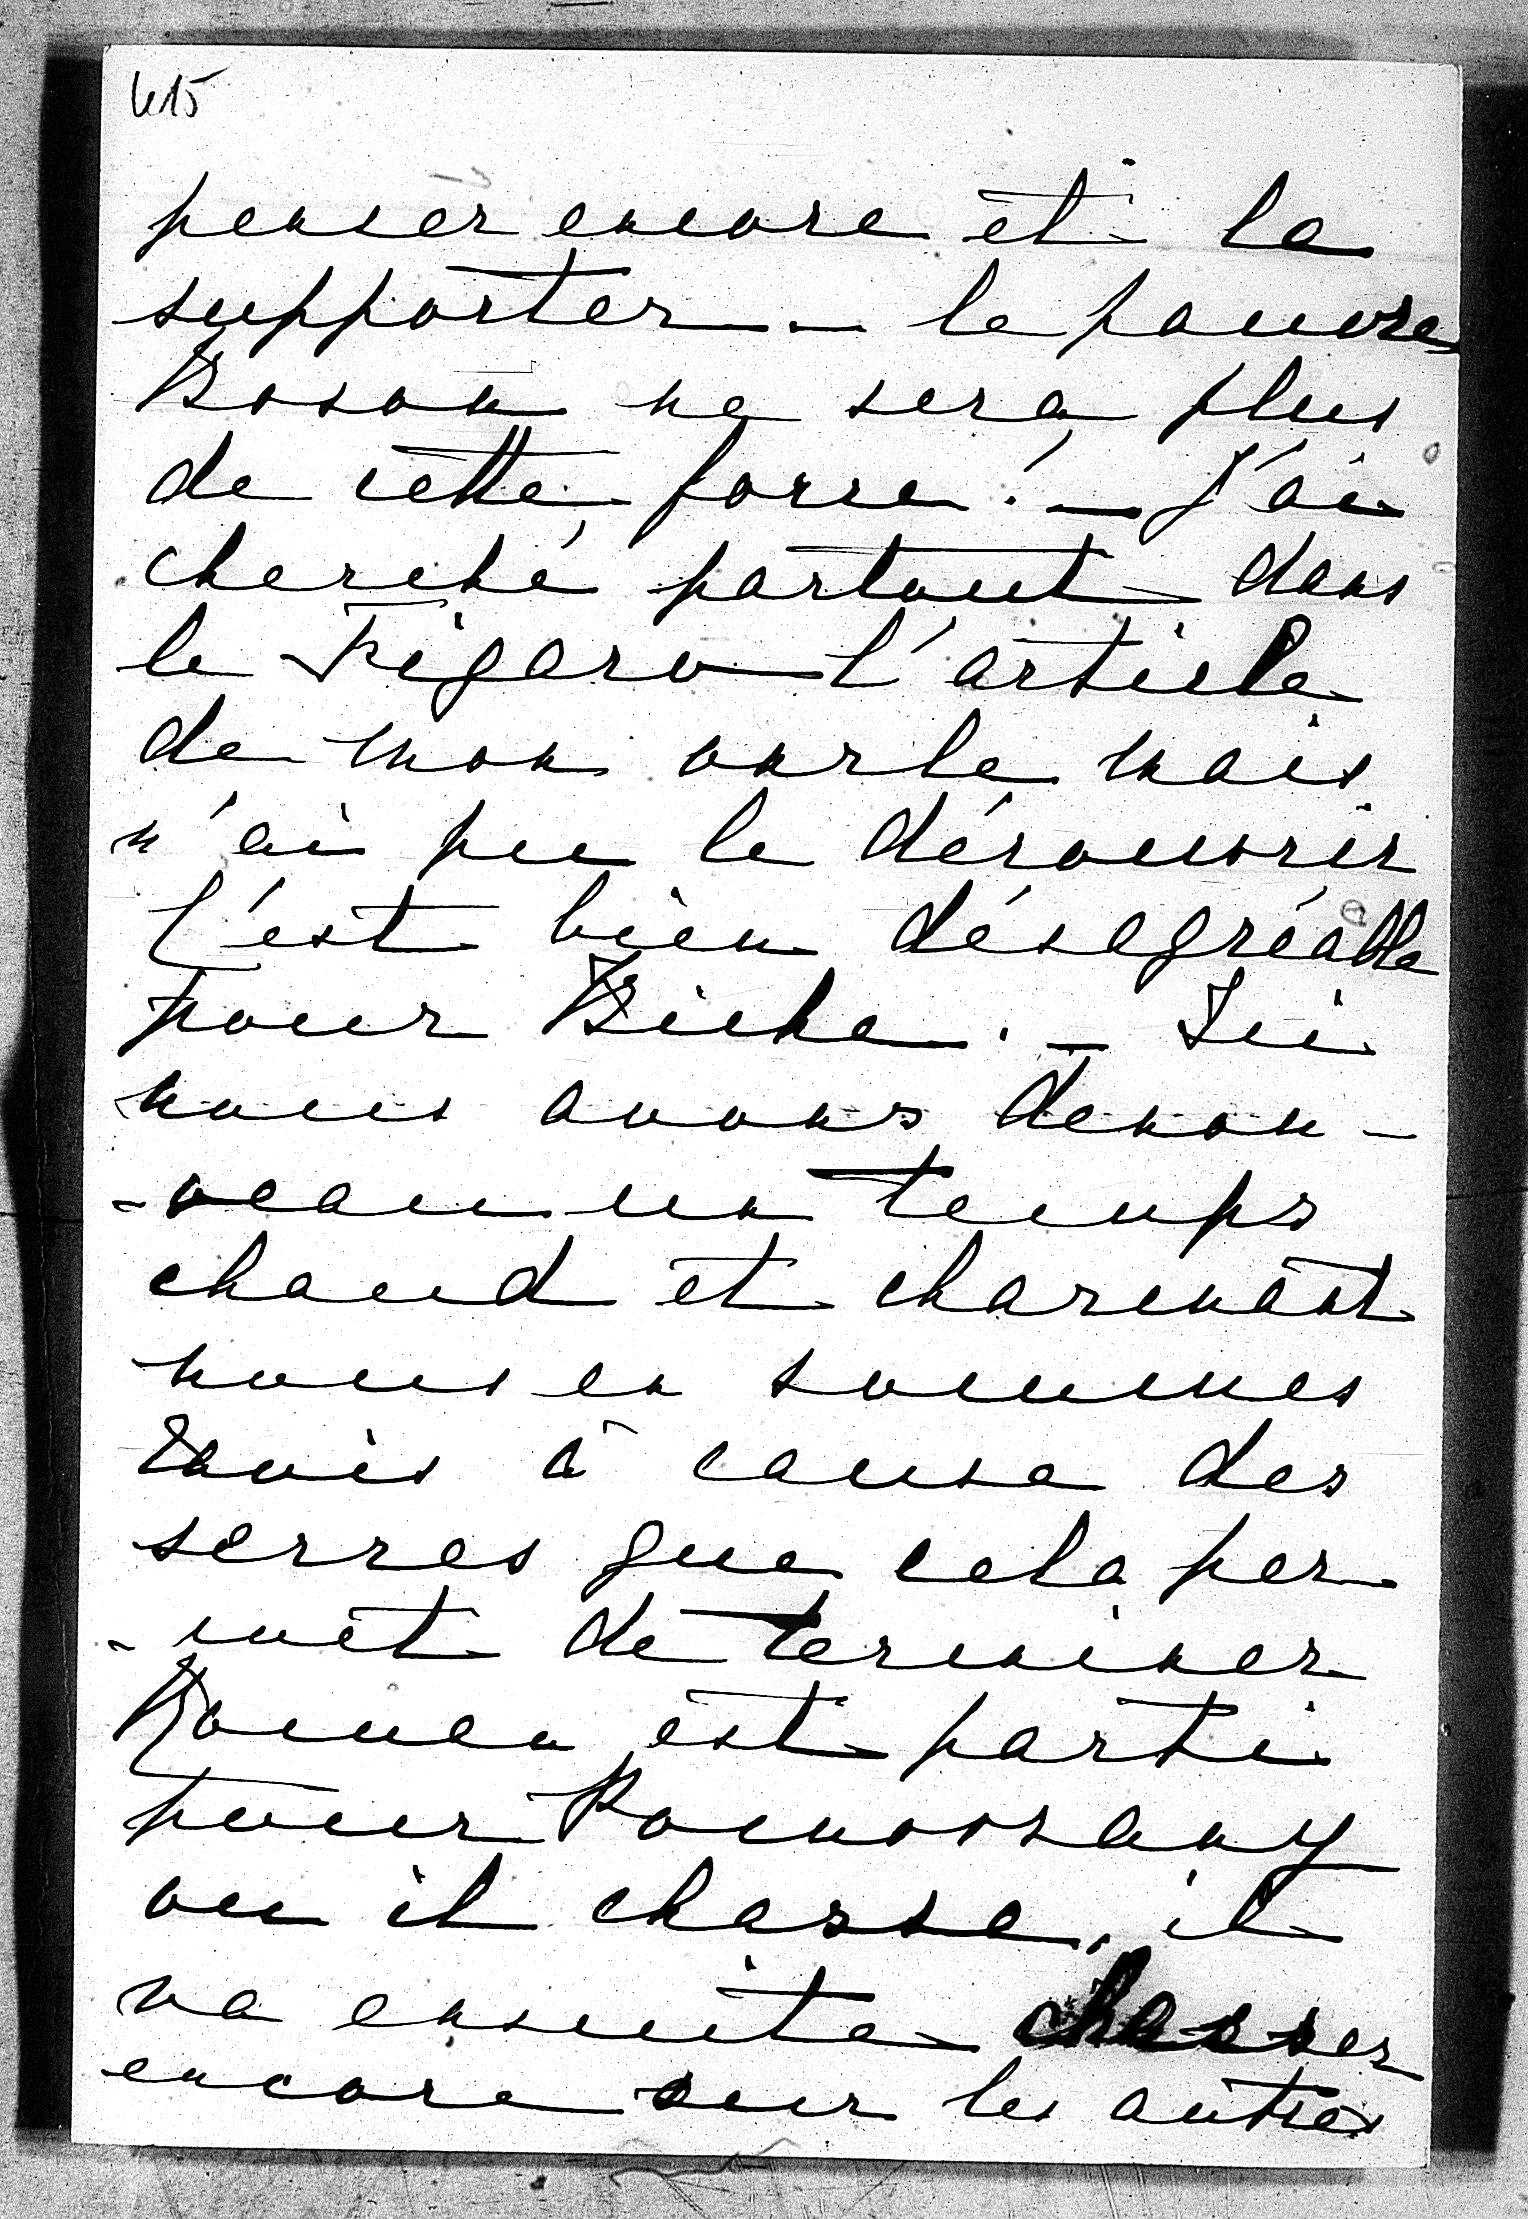 415
penser encore et la
supporter — le pauvre
Boson ne sera plus
de cette force ! — J'ai
cherché partout dans
le Figaro l'article
de mon oncle mais
n'ai pu le découvrir
C'est bien désagréable
pour Biche . — Ici
nous avons denou-
-veau un temps
chaud et charmant
nous en sommes
ravis à cause des
serres que cela per
-met de terminer
Roman est parti
pour Pomorzany
ou il chasse, il
va ensuite chasser
encore sur les autres